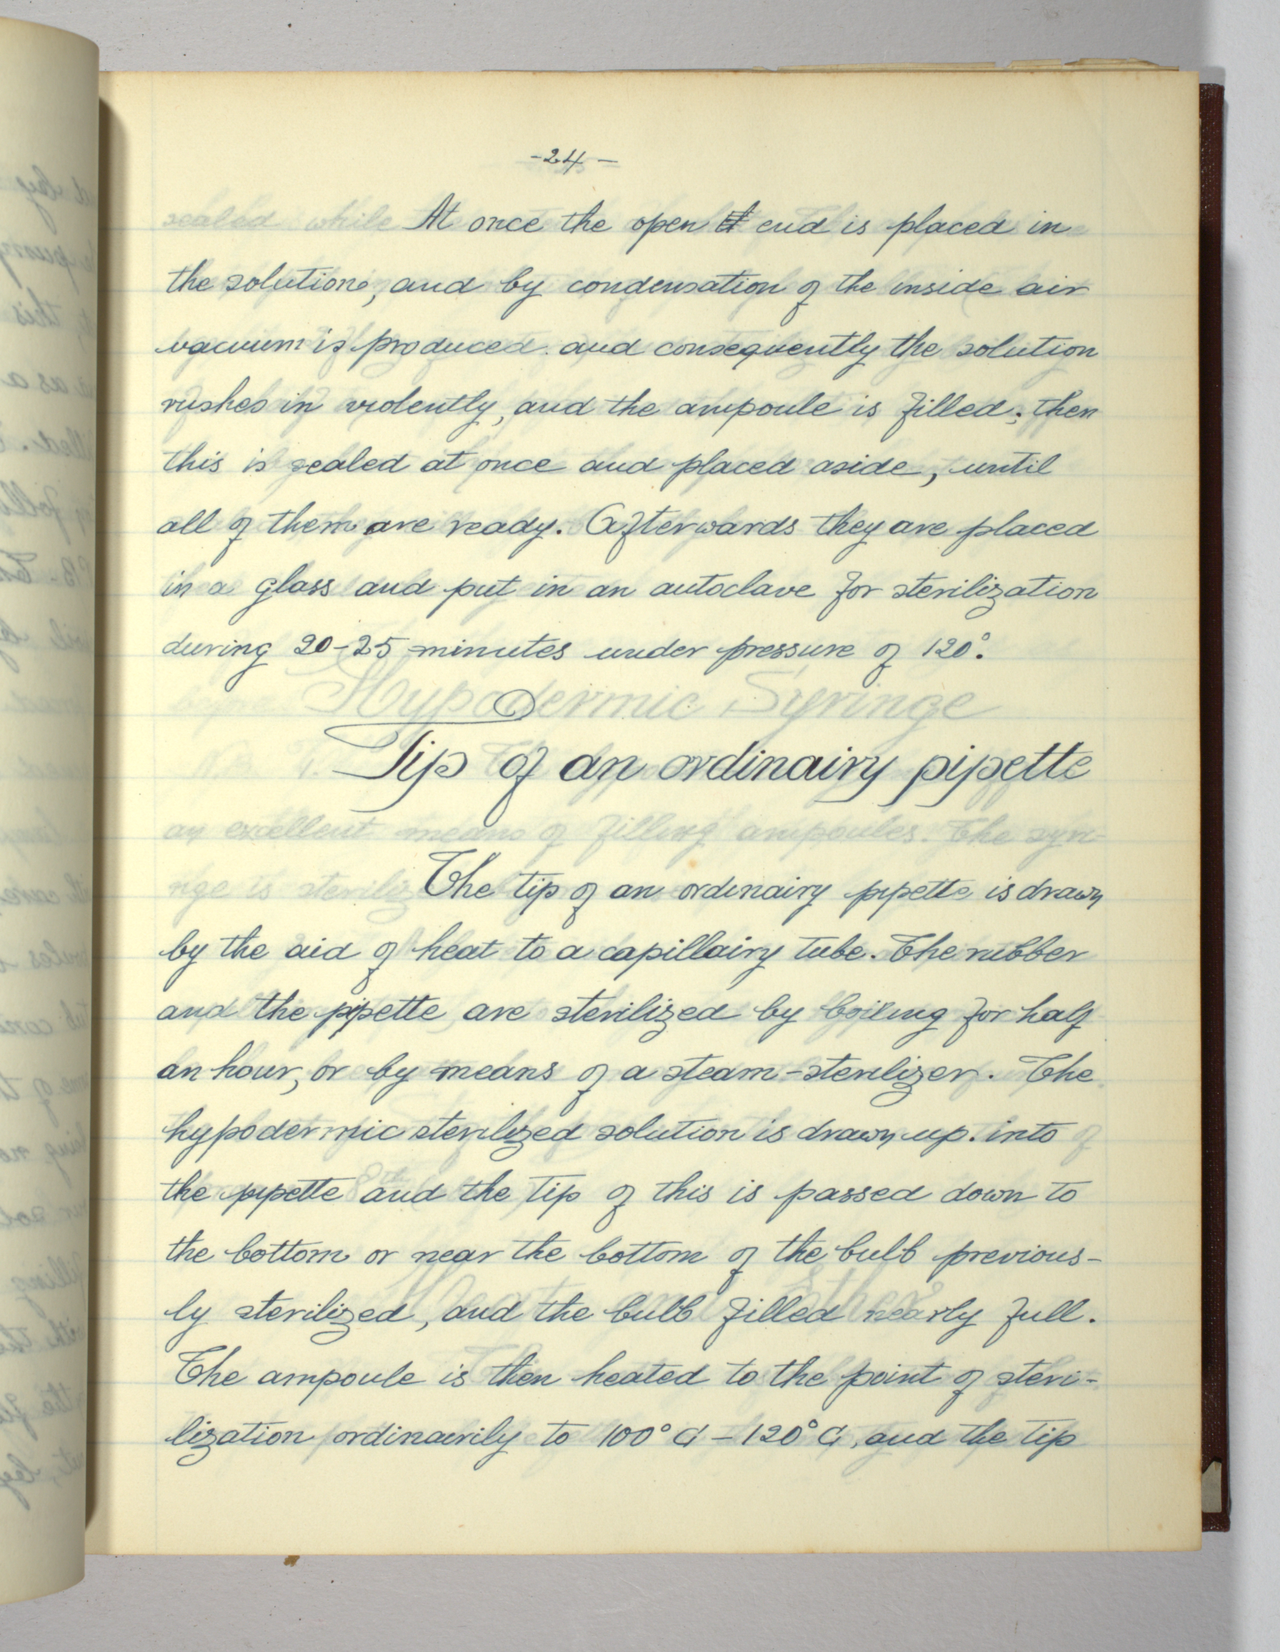 -24-
At once the open end is placed in
the solution, and by condensation of the inside air
vacuum is produced. and consequently the solution
rushes in violently, and the ampoule is filled; then
this is sealed at once and placed aside, until
all of them are ready. Afterwards they are placed
in a glass and put in an autoclave for sterilization
during 20-25 minutes under pressure of 120°.
Tip of an ordinairy pipette
The tip of an ordinairy pipette is drawn
by the aid of heat to a capillairy tube. The rubber
and the pipette are sterilized by boiling for half
an hour, or by means of a steam-sterilizer. The
hypodermic sterilized solution is drawn up. into
the pipette and the tip of this is passed down to
the bottom or near the bottom of the bulb previous-
ly sterilized, and the bulb filled nearly full.
The ampoule is then heated to the point of steri-
lization ordinairily to 100°C - 120°C, and the tip